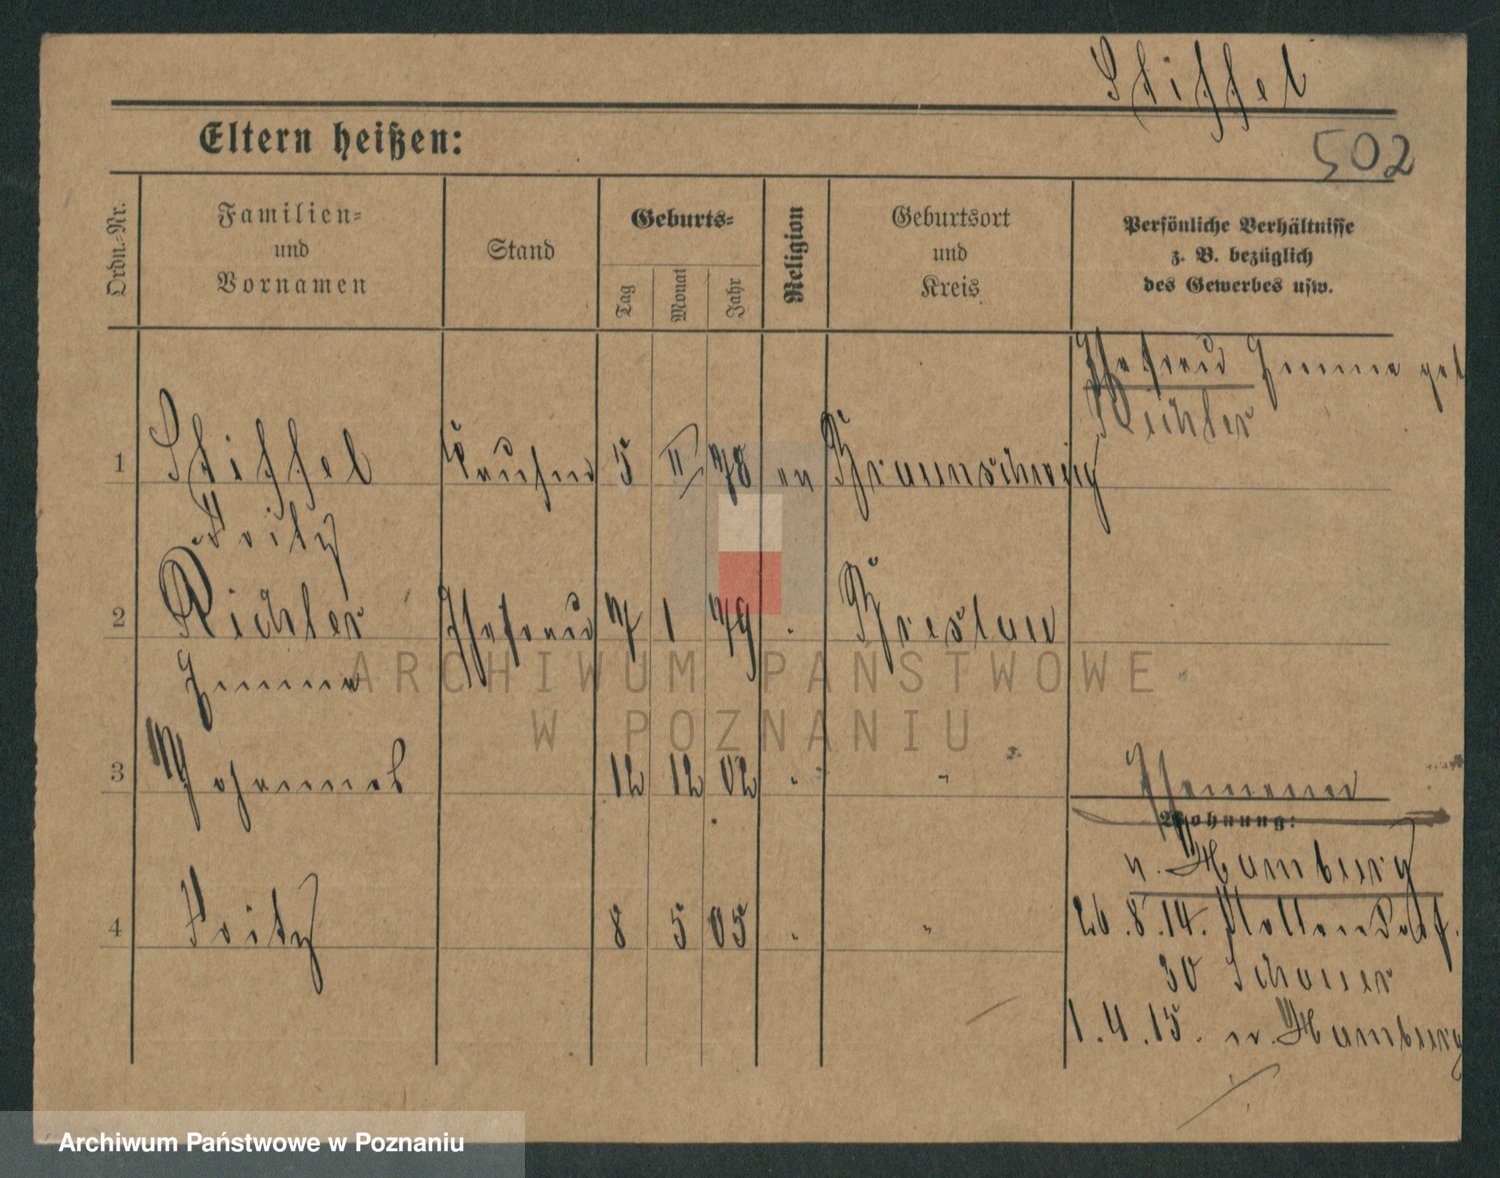 Stiffel
Eltern heißen:
502
Ordn.-Nr.
Familien-
und
Vornamen
Stand
Geburts-
Tag
Monat
Jahr
Religion
Geburtsort
und
Kreis
Persönliche Verhältnisse
z. B. bezüglich
des Gewerbes usw.
Ehefrau Emma geb
Richter
1 Stiffel Kaufm 5 II 78 ev Braunschweig
Fritz
2 Richter Ehefrau 7 1 79 " Breslau
Emma
3 Johannes 12 12 02 " "
Ehemann
Wohnung:
n. Hamburg
4 Fritz 8 5 05 " "
26.8.14.
30
1.4.15. n. Hamburg
ARCHIWUM PAŃSTWOWE
W POZNANIU
Archiwum Państwowe w Poznaniu